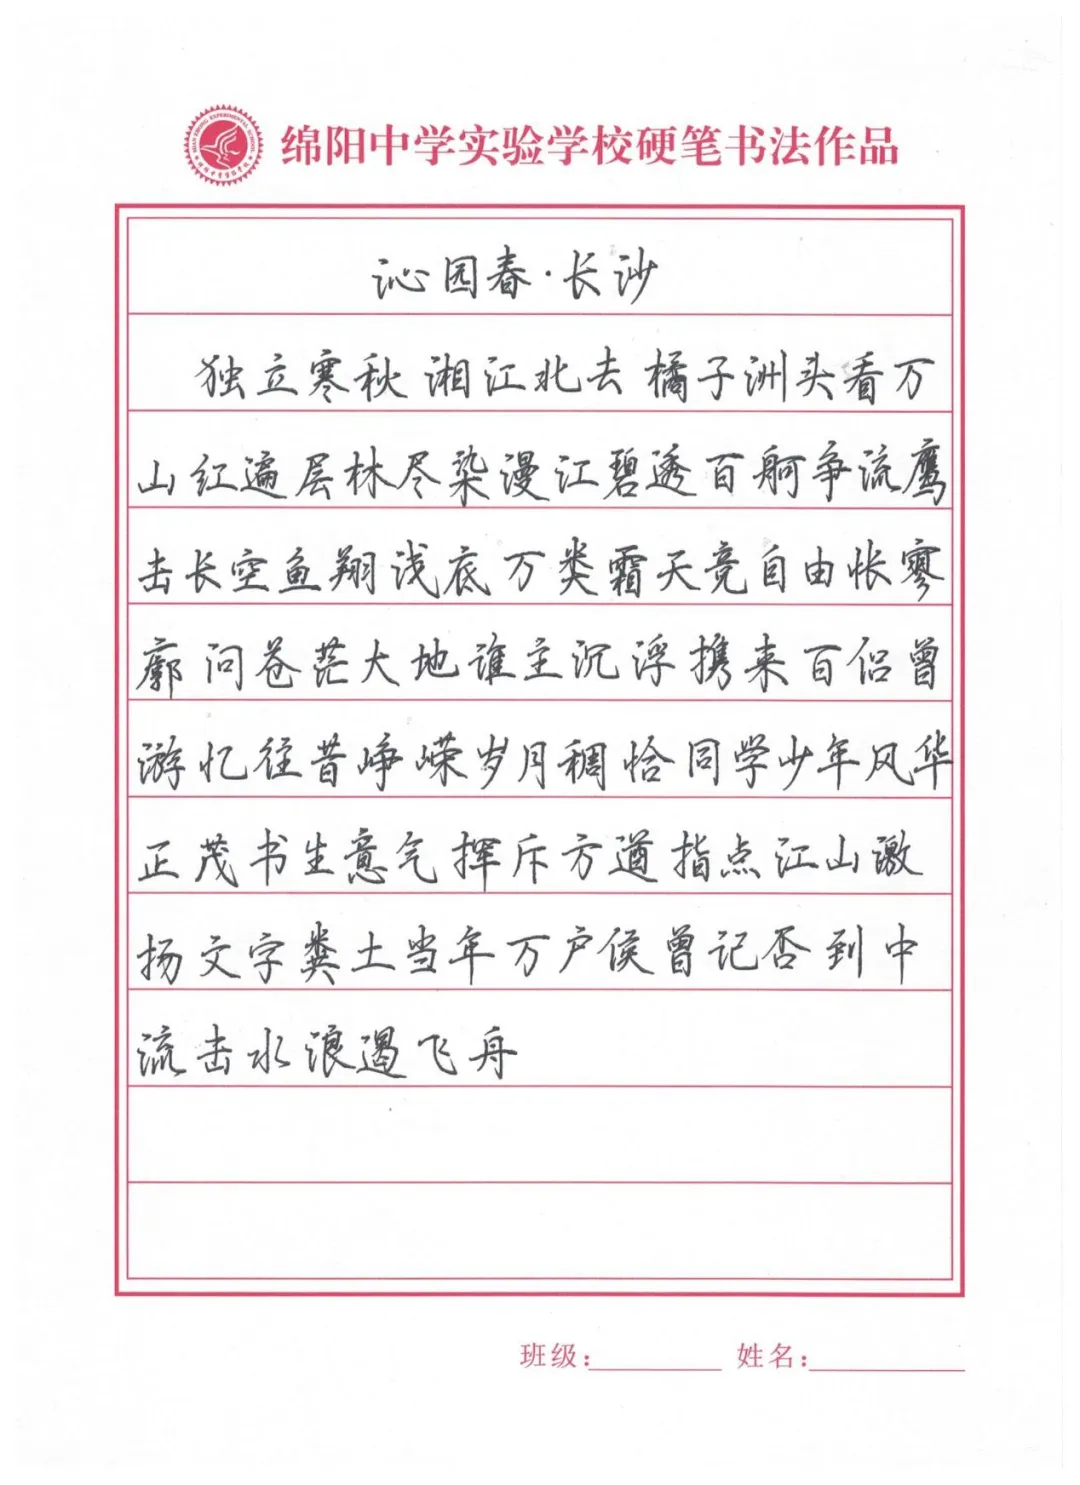 绵阳中学实验学校硬笔书法作品
沁园春·长沙
独立寒秋湘江北去橘子洲头看万
山红遍层林尽染漫江碧透百舸争流鹰
击长空鱼翔浅底万类霜天竞自由怅寥
廓问苍茫大地谁主沉浮携来百侣曾
游忆往昔峥嵘岁月稠恰同学少年风华
正茂书生意气挥斥方遒指点江山激
扬文字粪土当年万户侯曾记否到中
流击水浪遏飞舟
班级: 姓名: